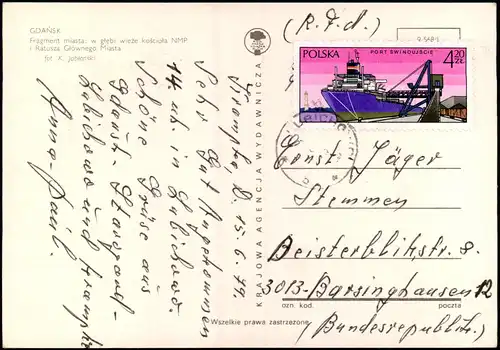 GDAŃSK
Fragment miasta; w głębi wieże kościoła NMP
i Ratusza Głównego Miasta
fot. K. Jabłoński
Krampke, D. 15.6.79.
Sehr Gut Angekommen
14. uh. in Lubichowo.
Schöne Grüse aus
Gdańsk- Stargard-
Lubichowo und Krampke
Anna Paul.
KRAJOWA AGENCJA WYDAWNICZA
Wszelkie prawa zastrzeżone
(R.F.d.)
POLSKA
PORT ŚWINOUJŚCIE
4,20
ZŁ
Ernst Jäger
Stemmen
Deisterblikstr. 8.
3013-Barsinghausen 12
ozn. kod.
poczta
(Bundesrepublik)